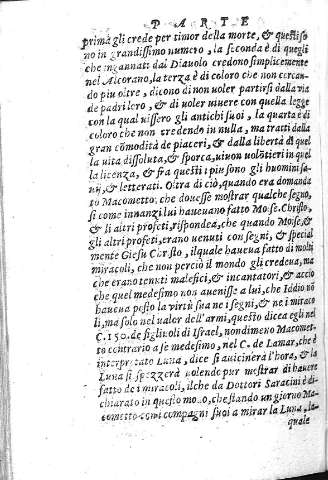 PARTE
prima gli crede per timor della morte, & questi so
no in grandissimo numero, la seconda è di quegli
che ingannati dal Diauolo credono simplicemente
nel Alcorano, la terza è di coloro che non cercan-
do piu oltre, dicono di non uoler partirsi dalla via
de padri loro, & di uoler uiuere con quella legge
con la qual uissero gli antichi suoi, la quarta è di
coloro che non credendo in nulla, ma tratti dalla
gran cōmodità de piaceri, & dalla libertà di quel
la uita dissoluta, & sporca, uiuon uolōtieri in quel
la licenza, & fra questi i piu sono gli huomini sa-
uij, & letterati. Oltra di ciò, quando era domanda
to Macometto: che douesse mostrar qualche segno,
si come innanzi lui haueuano fatto Moise, Christo,
& li altri profeti, rispondea, che quando Moise, &
gli altri profeti, erano uenuti con segni, & special
mente Giesu Christo, ilquale haueua fatto di molti
miracoli, che non perciò il mondo gli credeua, ma
che erano tenuti malefici, & incantatori, & acciò
che quel medesimo non auenisse a lui, che Iddio nō
haueua posto la virtù sua ne i segni, & ne i miraco
li, ma solo nel valor dell'armi, questo dicea egli nel
C. 150. de figliuoli di Israel, nondimeno Macomet-
to contrario a se medesimo, nel C. de Lamar, che è
interpretato Luna, dice si auicinerà l'hora, & la
Luna si spezzerà uolendo pur mostrar di hauere
fatto de i miracoli, ilche da Dottori Saracini è di-
chiarato in questo modo, che stando un giorno Ma-
cometto con i compagni suoi a mirar la Luna, la-
quale